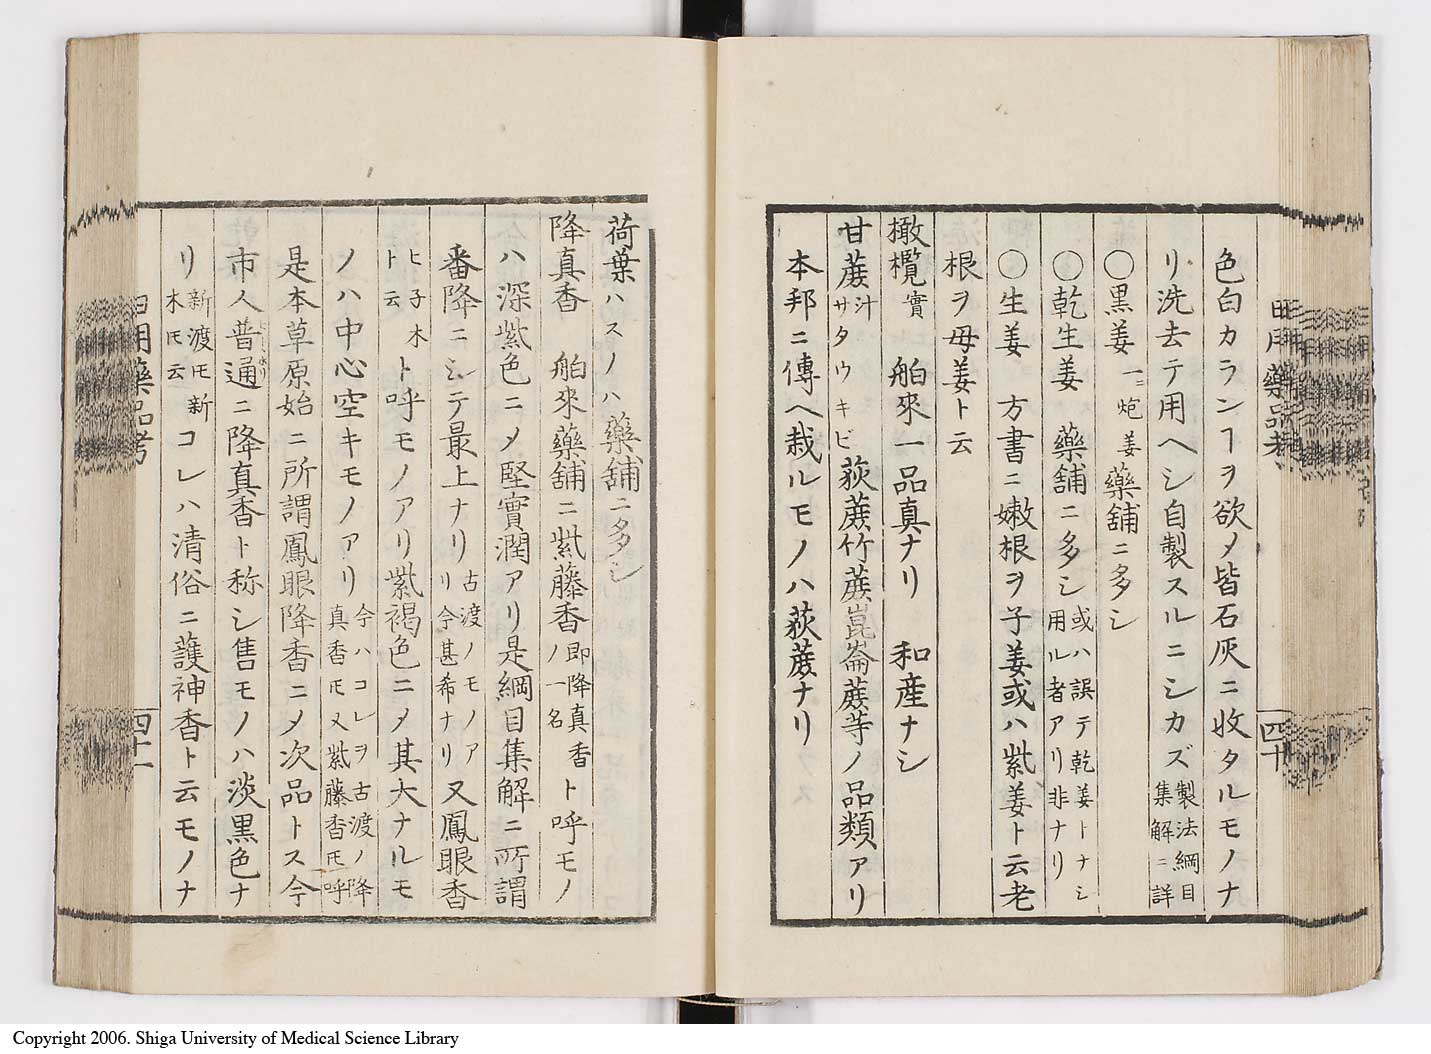 色白カランヿヲ欲メ皆石灰ニ收タルモノナ
リ洗去テ用ヘシ自製スルニシカズ製法綱目集解ニ詳
○黒姜一ニ炮姜藥舗ニ多シ
○乾生姜 藥舗ニ多シ或ハ誤テ乾姜トナシ用ル者アリ非ナリ
○生姜 方書ニ嫩根ヲ子姜或ハ紫姜ト云老
根ヲ母姜ト云
橄欖實 舶來一品真ナリ 和産ナシ
甘蔗汁サタウキビ荻蔗竹蔗崑崙蔗等ノ品類アリ
本邦ニ傳ヘ栽ルモノハ荻蔗ナリ
日用藥品考
四十
荷葉ハスノハ藥舗ニ多シ
降真香 舶來藥舗ニ紫藤香即降真香ノ一名ト呼モノ
ハ深紫色ニメ堅實潤アリ是綱目集解ニ所謂
番降ニシテ最上ナリ古渡ノモノアリ今甚希ナリ又鳳眼香
ヒ子木ト云ト呼モノアリ紫褐色ニメ其大ナルモ
ノハ中心空キモノアリ今ハコレヲ古渡ノ降真香𪜈又紫藤香𪜈呼
是本草原始ニ所謂鳳眼降香ニメ次品トス今
市人普通ニ降真香ト称シ售モノハ淡黒色ナ
リ新渡𪜈新木𪜈云コレハ清俗ニ護神香ト云モノナ
日用藥品考
四十一
Copyright 2006. Shiga University of Medical Science Library